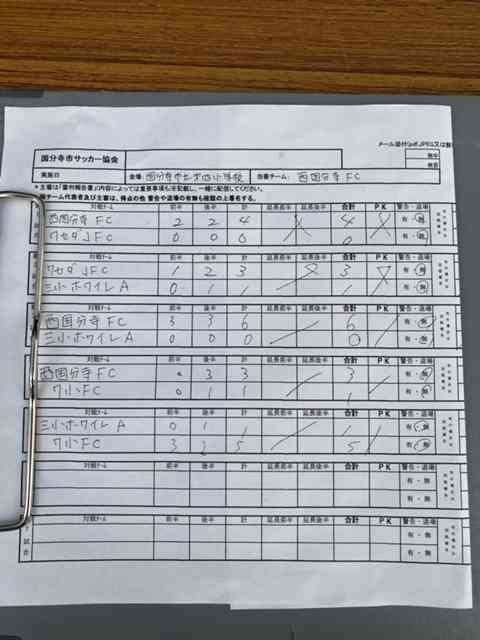 国分寺市サッカー協会
実施日 会場: 国分寺市立第四小学校 当番チーム: 西国分寺FC
対戦チーム 前半 後半 計 延長前半 延長後半 合計 PK 警告・退場
西国分寺FC 2 2 4 4 有・無
ワセダJFC 0 0 0 0 有・無
対戦チーム 前半 後半 計 延長前半 延長後半 合計 PK 警告・退場
ワセダJFC 1 2 3 3 有・無
三小ホワイレA 0 1 1 1 有・無
対戦チーム 前半 後半 計 延長前半 延長後半 合計 PK 警告・退場
西国分寺FC 3 3 6 6 有・無
三小ホワイレA 0 0 0 0 有・無
対戦チーム 前半 後半 計 延長前半 延長後半 合計 PK 警告・退場
西国分寺FC 0 3 3 3 有・無
ワ小FC 0 1 1 1 有・無
対戦チーム 前半 後半 計 延長前半 延長後半 合計 PK 警告・退場
三小ホワイレA 0 1 1 1 有・無
ワ小FC 3 2 5 5 有・無
対戦チーム 前半 後半 計 延長前半 延長後半 合計 PK 警告・退場
有・無
有・無
対戦チーム 前半 後半 計 延長前半 延長後半 合計 PK 警告・退場
有・無
試合 有・無